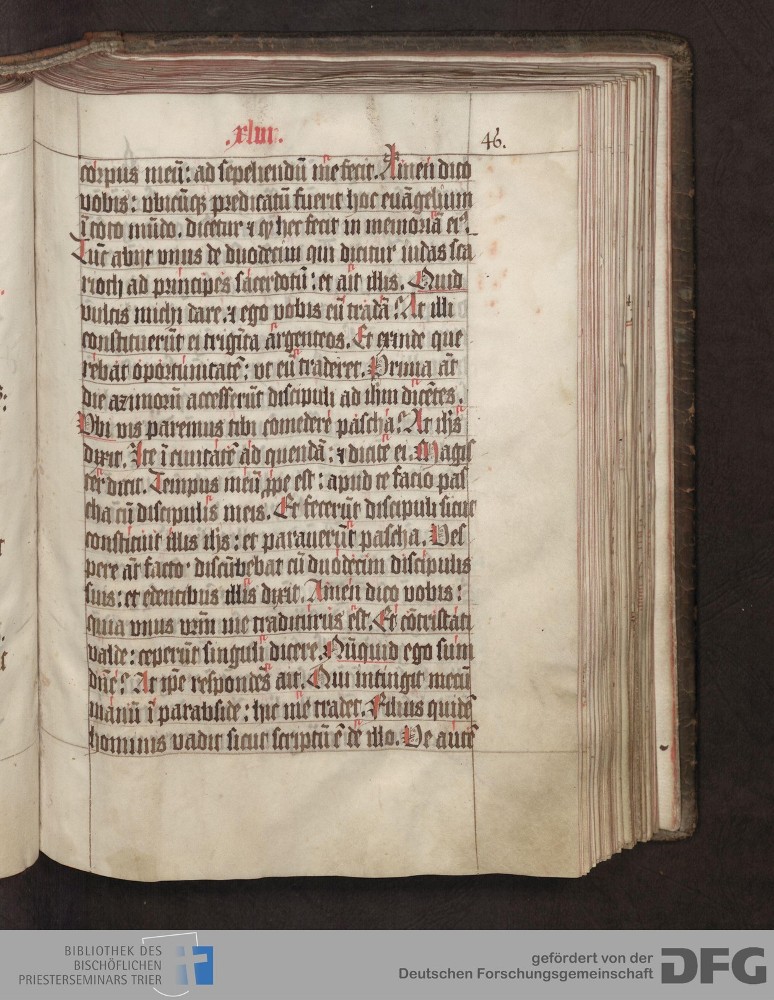 .xliii.
46.
corpus meū: ad sepeliendū me fecit. Amen dico
vobis: vbicūqꝫ predicatū fuerit hoc euāgelium
ī toto mūdo. dicetur ⁊ ꝙ hec fecit in memoriā eiꝰ.
Tūc abijt vnus de duodecim qui dicitur iudas sca
rioth ad principes sacerdotū: et ait illis. Quid
vultis michi dare. ⁊ ego vobis eū tradā? At illi
constituerūt ei trigīta argenteos. Et exinde que
rebat oportunitatē: vt eū traderet. Prima āt
die azimorū accesserūt discipuli ad ihm dicētes.
Vbi vis paremus tibi comedere pascha? At ihs
dixit. Ite ī ciuitatē ad quendā: ⁊ dicite ei. Magis
ter dicit. Tempus meū ꝓpe est: apud te facio pas
cha cū discipulis meis. Et fecerūt discipuli sicut
constituit illis ihs: et parauerūt pascha. Ves
pere āt facto discūbebat cū duodecim discipulis
suis: et edentibus illis dixit. Amen dico vobis:
quia vnus vrm me traditurus est. Et cōtristati
valde: ceperūt singuli dicere. Nūquid ego sum
dne? At ipe respondēs ait. Qui intingit mecū
manū ī parabside: hic me tradet. Filius quidē
hominis vadit sicut scriptū ē de illo. Ve autē
BIBLIOTHEK DES
BISCHÖFLICHEN
PRIESTERSEMINARS TRIER
gefördert von der
Deutschen Forschungsgemeinschaft
DFG